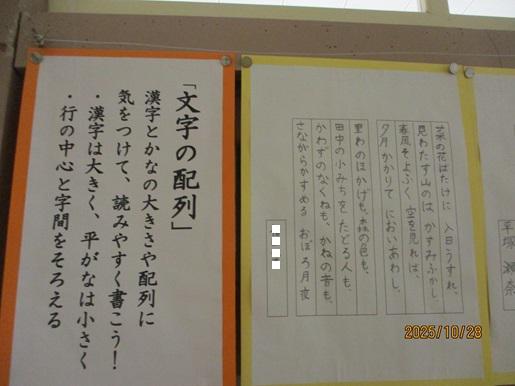 「文字の配列」
漢字とかなの大きさや配列に
気をつけて、読みやすく書こう！
・漢字は大きく、平がなは小さく
・行の中心と字間をそろえる
菜の花ばたけに 入日うすれ、
見わたす山のは かすみふかし。
春風そよふく 空を見れば、
夕月 かかりて においあわし。
里わのほかげも、森の色も、
田中の小みちを たどる人も、
かわずのなくねも、かねの音も、
さながらかすめる おぼろ月夜
2025/10/28